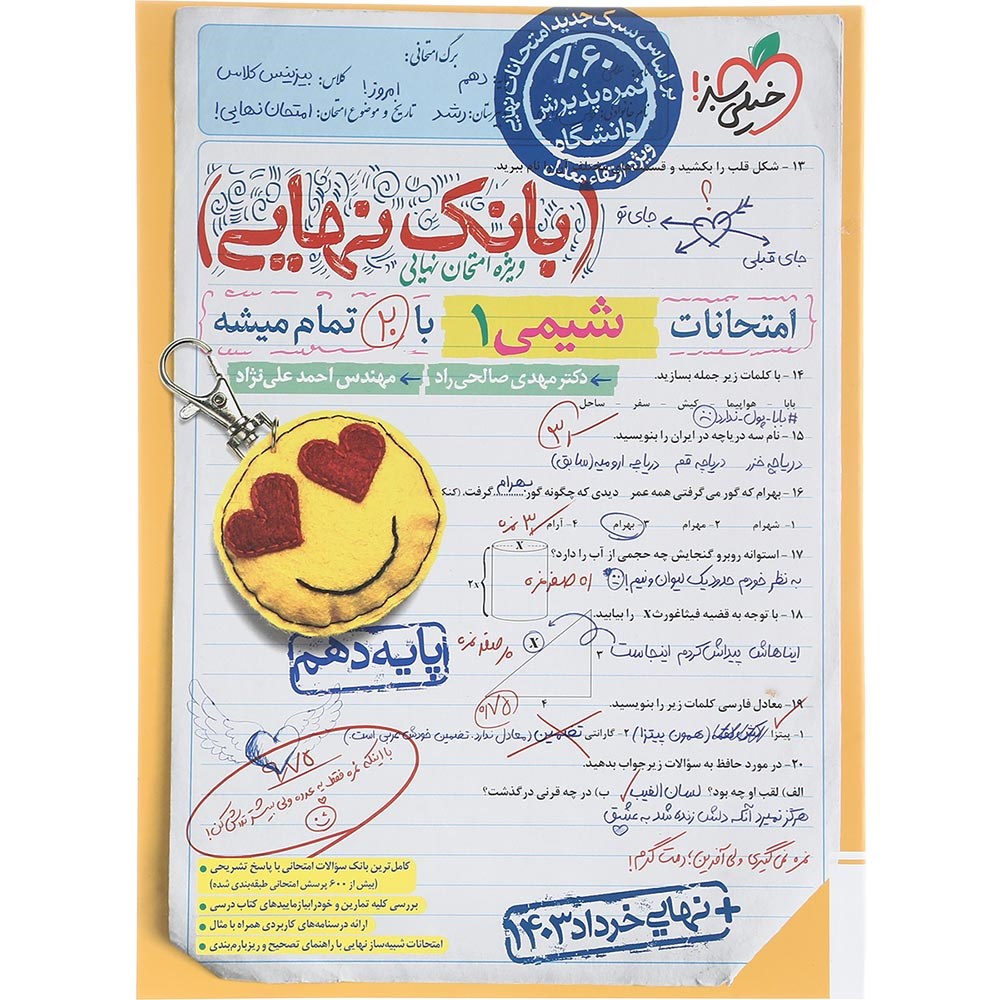 خیلی سبز!
بر اساس سبک جدید امتحانات نهایی
%۶۰
نمره پذیرش
دانشگاه
ویژه ارتقاء معدل
برگ امتحانی:
دهم
کلاس: بیزینس کلاس
رشد
تاریخ و موضوع امتحان: امروز! امتحان نهایی!
۱۳ - شکل قلب را بکشید و نام ببرید.
؟
جای تو
جای قبلی
(بانک نهایی)
ویژه امتحان نهایی
امتحانات شیمی ۱ با ۲۰ تمام میشه
دکتر مهدی صالحی راد ← مهندس احمد علی نژاد ←
۱۴ - با کلمات زیر جمله بسازید.
بابا - هواپیما - کیش - سفر - ساحل
#بابا-پول-ندارد
۱۵ - نام سه دریاچه در ایران را بنویسید.
دریاچه خزر دریاچه قم دریاچه ارومیه (سابق)
۱۶ - بهرام که گور می گرفتی همه عمر دیدی که چگونه گور بهرام گرفت.
۱- شهرام ۲- مهرام ۳- بهرام ۴- آرام
۳ نمره
۱۷ - استوانه روبرو گنجایش چه حجمی از آب را دارد؟
X
۲x
به نظر خودم حدود یک لیوان و نیم!
اه صفر نمره
۱۸ - با توجه به قضیه فیثاغورث X را بیابید.
X
۳
۴
ایناهاش پیداش کردم اینجاست
صفر نمره
پایه دهم
۱۹- معادل فارسی کلمات زیر را بنویسید.
۰/۷۵
۱- پیتزا (همون پیتزا) ۲- گارانتی تضمین (معادل ندارد. تضمین خودش عربی است.)
۲۰- در مورد حافظ به سؤالات زیر جواب بدهید.
الف) لقب او چه بود؟ لسان الغیب ب) در چه قرنی درگذشت؟
هرگز نمیرد آنکه دلش زنده شد به عشق
نمره نمی‌گیری ولی آفرین؛ دمت گرم!
۹/۷۵
با اینکه نمره فقط یه عدده ولی بیشتر تلاش کن!
کامل‌ترین بانک سؤالات امتحانی با پاسخ تشریحی
(بیش از ۶۰۰ پرسش امتحانی طبقه‌بندی شده)
بررسی کلیه تمارین و خود را بیازمایید‌های کتاب درسی
ارائه درسنامه‌های کاربردی همراه با مثال
امتحانات شبیه‌ساز نهایی با راهنمای تصحیح و ریزبارم‌بندی
+ نهایی خرداد ۱۴۰۳